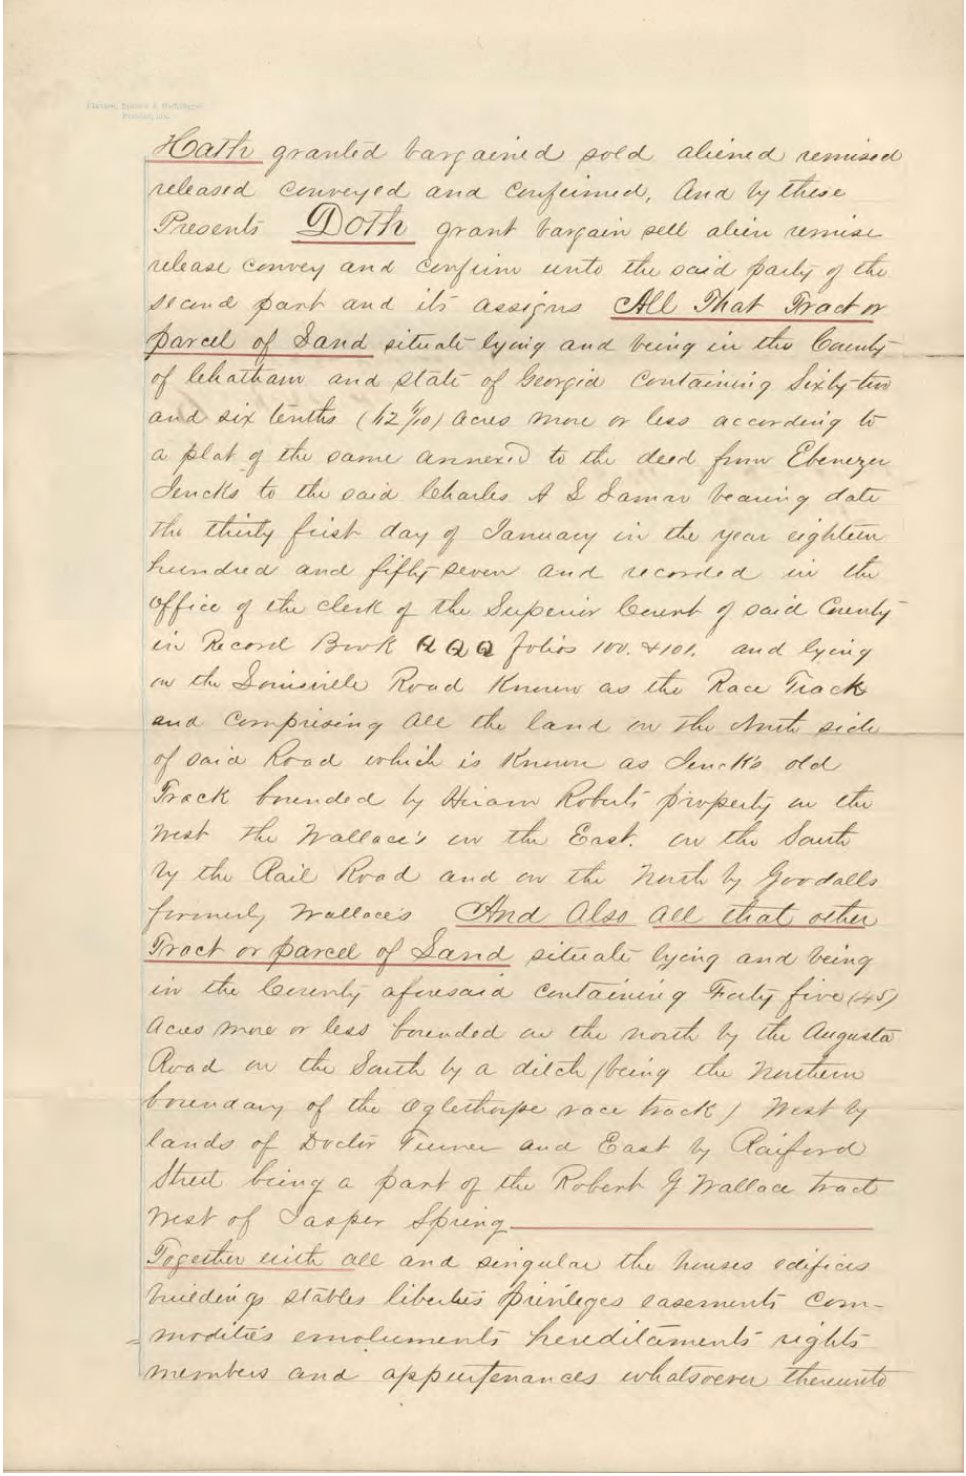 Hath granted bargained sold aliened remised
released conveyed and confirmed, And by these
Presents Doth grant bargain sell alien remise
release convey and confirm unto the said party of the
second part and its assigns All That Tract or
parcel of Land situate lying and being in the County
of Chatham and state of Georgia Containing Sixty-two
and six tenths (62 6/10) Acres more or less according to
a plat of the same annexed to the deed from Ebenezer
Jencks to the said Charles A L Lamar bearing date
the thirty first day of January in the year eighteen
hundred and fifty-seven and recorded in the
office of the clerk of the Superior Court of said County
in Record Book QQQ folios 100. & 101. and lying
on the Louisville Road Known as the Race Track
and Comprising all the land on the North side
of said Road which is Known as Jenck's old
Track bounded by Hiram Roberts property on the
West the Wallace's on the East. on the South
by the Rail Road and on the North by Goodalls
formerly Wallace's And Also all that other
Tract or parcel of Land situate lying and being
in the County aforesaid containing Forty five (45)
Acres more or less bounded on the north by the Augusta
Road on the South by a ditch (being the Northern
boundary of the Oglethorpe race track) West by
lands of Doctor Turner and East by Raiford
Street being a part of the Robert G Wallace tract
West of Jasper Spring
Together with all and singular the houses edifices
buildings stables liberties privileges easements com-
modities emoluments hereditaments rights
members and appurtenances whatsoever thereunto